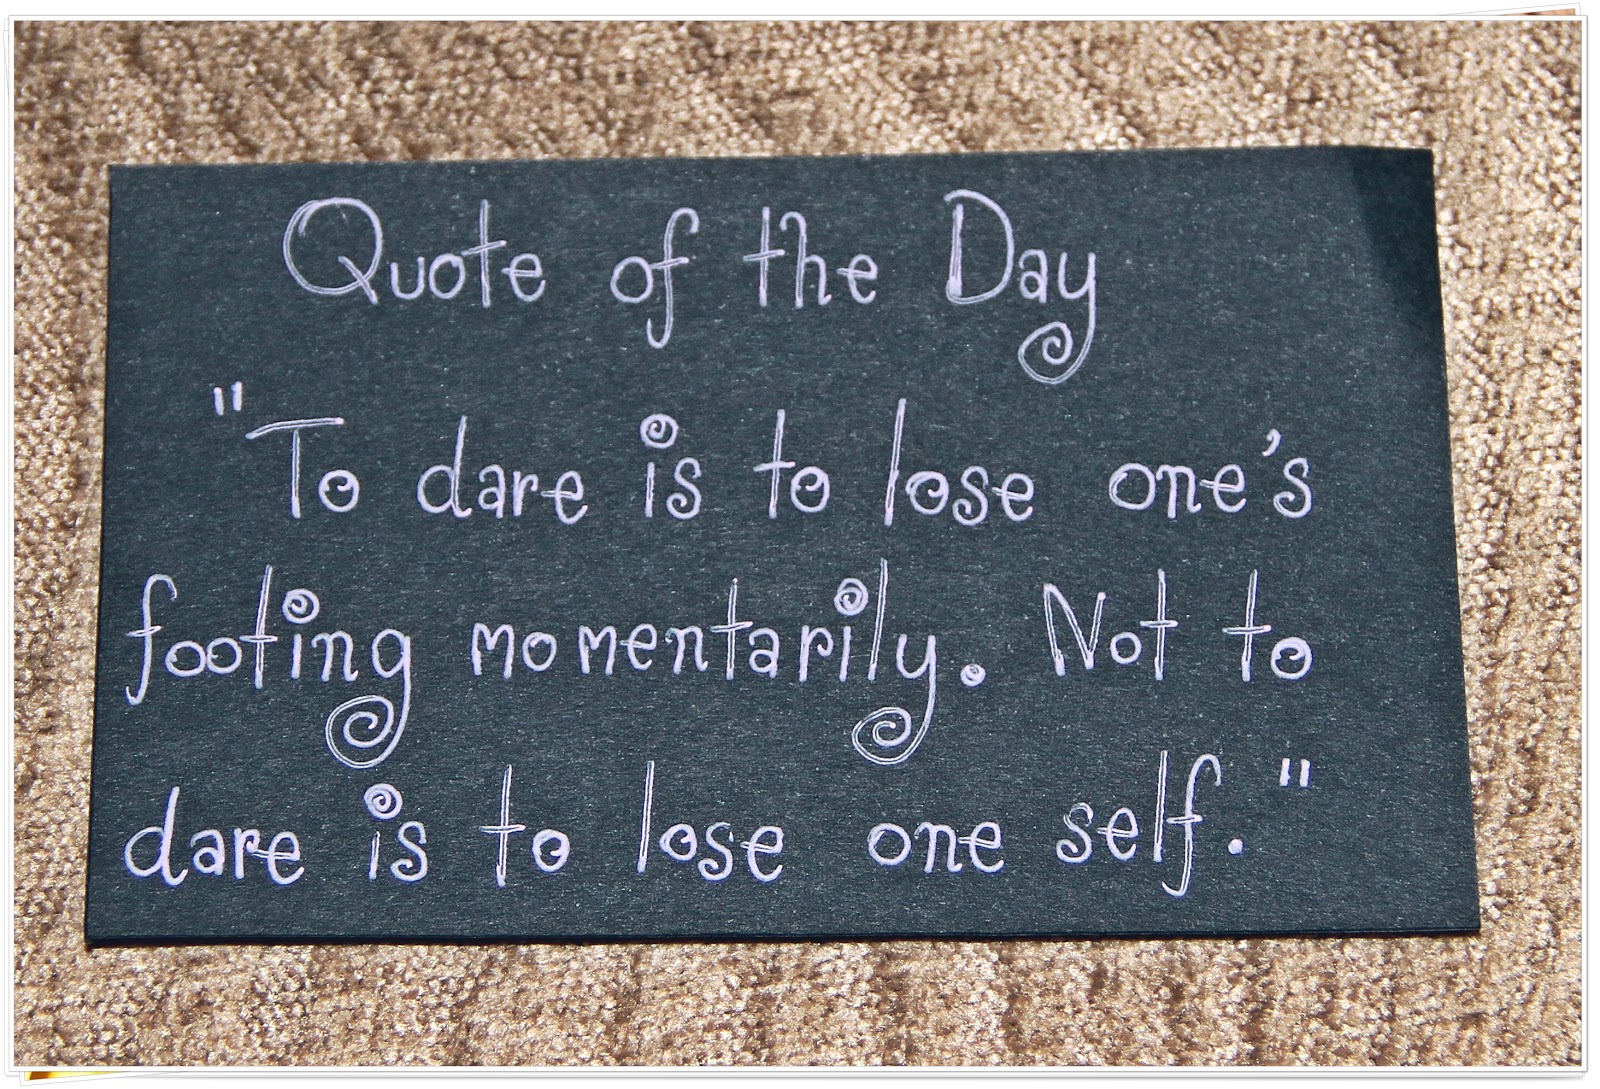 Quote of the Day
"To dare is to lose one's
footing momentarily. Not to
dare is to lose one self."